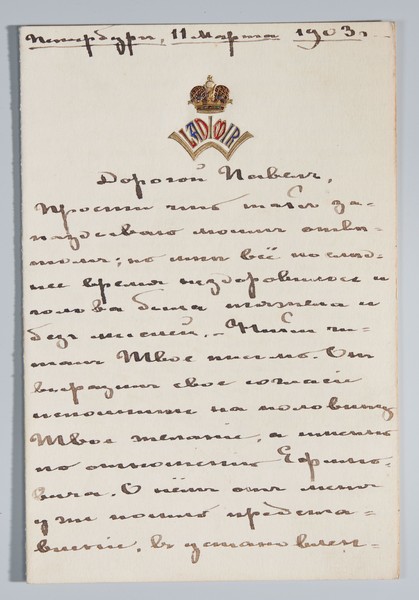 Петербургъ, 11 Марта 1903 г.
VLADIMIR
Дорогой Павелъ,
Прости что такъ за=
паздываю моимъ отвѣ=
томъ; но мнѣ всё послѣд=
нее время нездоровилось и
голова была тяжела и
безъ мыслей. Ники чи=
талъ Твое письмо. Онъ
выразилъ свое согласіе
исполнить на половину
Твое желаніе, а именно
по отношенію Ефимо=
вича. О нёмъ онъ меня
уже понялъ предста=
вленіе, въ установлен=